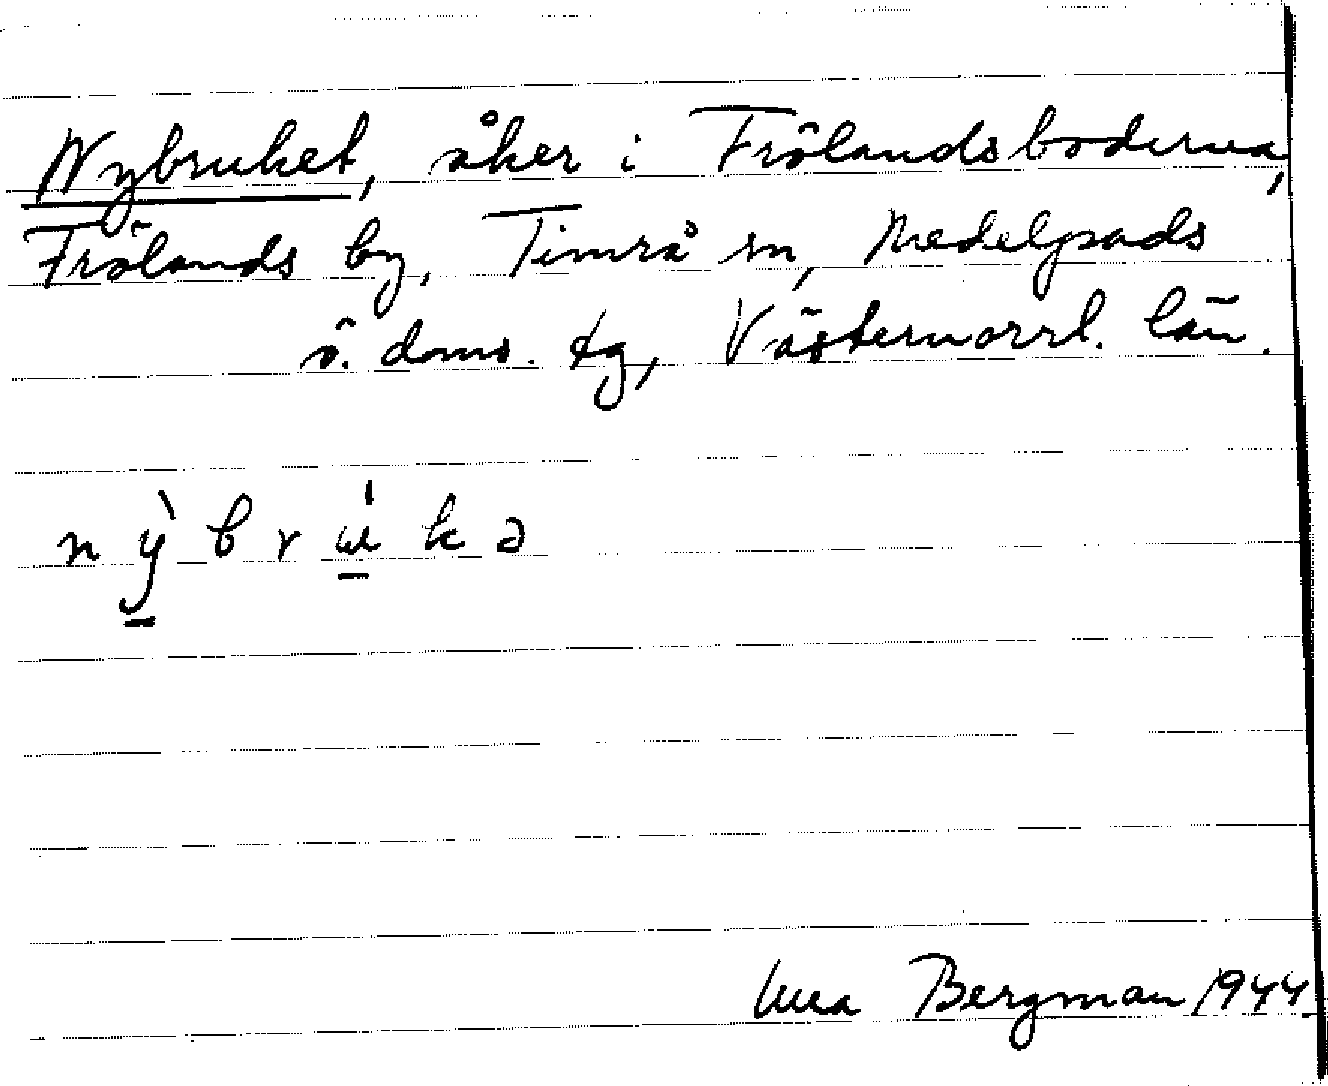 Nybruket, åker i Frölandsboderna,
Frölands by, Timrå sn, Medelpads
ö. doms. tg, Västernorrl. län.
n ỳ̠ b r u̠̍ k ə
Bergman 1944